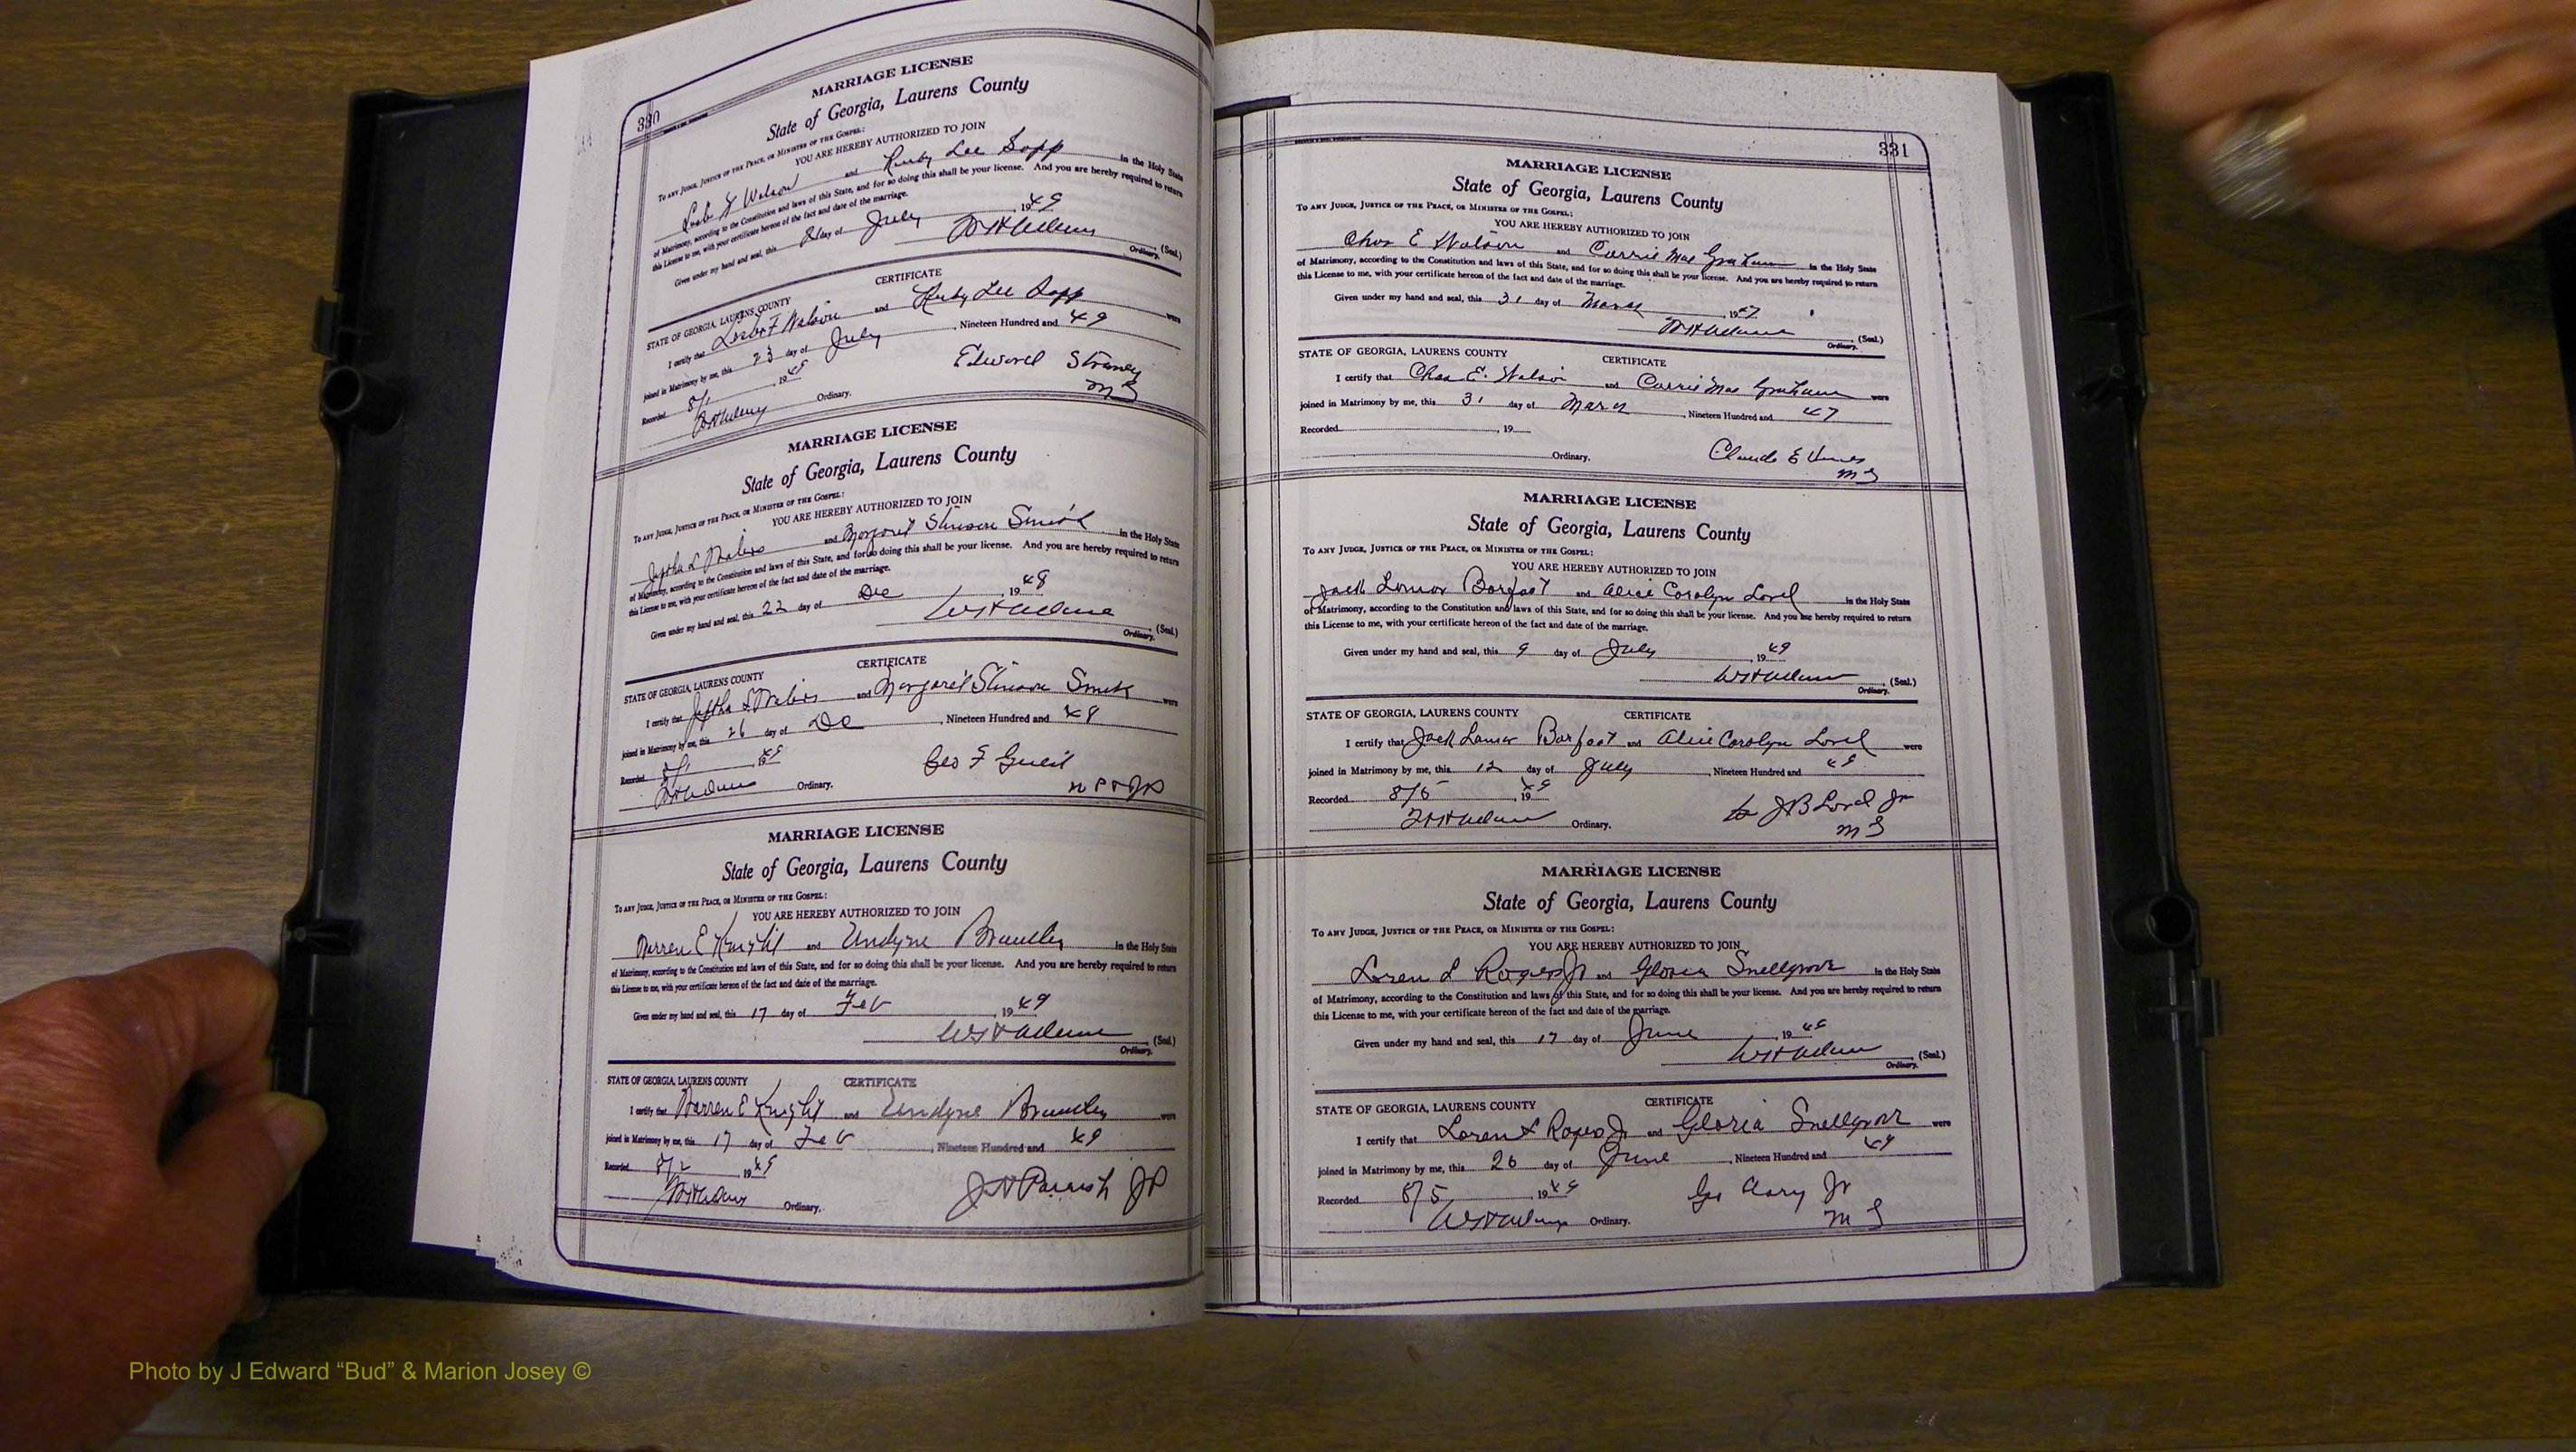 330
MARRIAGE LICENSE
State of Georgia, Laurens County
To any Judge, Justice of the Peace, or Minister of the Gospel:
YOU ARE HEREBY AUTHORIZED TO JOIN
and Ruby Lee Sapp in the Holy State
of Matrimony, according to the Constitution and laws of this State, and for so doing this shall be your license. And you are hereby required to return
this License to me, with your certificate hereon of the fact and date of the marriage.
Given under my hand and seal, this day of July 1949
(Seal.)
Ordinary.
CERTIFICATE
STATE OF GEORGIA, LAURENS COUNTY
I certify that and Ruby Lee Sapp were
joined in Matrimony by me, this 23 day of July, Nineteen Hundred and 49
Recorded 8/1, 1949
Edward
MG
Ordinary.
MARRIAGE LICENSE
State of Georgia, Laurens County
To any Judge, Justice of the Peace, or Minister of the Gospel:
YOU ARE HEREBY AUTHORIZED TO JOIN
and Margaret Smith in the Holy State
of Matrimony, according to the Constitution and laws of this State, and for so doing this shall be your license. And you are hereby required to return
this License to me, with your certificate hereon of the fact and date of the marriage.
Given under my hand and seal, this 22 day of Dec 1948
(Seal.)
Ordinary.
CERTIFICATE
STATE OF GEORGIA, LAURENS COUNTY
I certify that and Margaret Smith were
joined in Matrimony by me, this 26 day of Dec, Nineteen Hundred and 48
Recorded 8/1, 1949
Geo F
Ordinary.
MARRIAGE LICENSE
State of Georgia, Laurens County
To any Judge, Justice of the Peace, or Minister of the Gospel:
YOU ARE HEREBY AUTHORIZED TO JOIN
Warren E Knight and Undyne Brantley in the Holy State
of Matrimony, according to the Constitution and laws of this State, and for so doing this shall be your license. And you are hereby required to return
this License to me, with your certificate hereon of the fact and date of the marriage.
Given under my hand and seal, this 17 day of Feb, 1949
(Seal.)
Ordinary.
STATE OF GEORGIA, LAURENS COUNTY CERTIFICATE
I certify that Warren E Knight and Undyne Brantley were
joined in Matrimony by me, this 17 day of Feb, Nineteen Hundred and 49
Recorded 8/2, 1949
Parrish JP
Ordinary.
331
MARRIAGE LICENSE
State of Georgia, Laurens County
To any Judge, Justice of the Peace, or Minister of the Gospel:
YOU ARE HEREBY AUTHORIZED TO JOIN
Chas E Watson and Carrie Mae Graham in the Holy State
of Matrimony, according to the Constitution and laws of this State, and for so doing this shall be your license. And you are hereby required to return
this License to me, with your certificate hereon of the fact and date of the marriage.
Given under my hand and seal, this 31 day of March, 1947
(Seal.)
Ordinary.
STATE OF GEORGIA, LAURENS COUNTY CERTIFICATE
I certify that Chas E. Watson and Carrie Mae Graham were
joined in Matrimony by me, this 31 day of March, Nineteen Hundred and 47
Recorded, 19
Ordinary. Claude E
MG
MARRIAGE LICENSE
State of Georgia, Laurens County
To any Judge, Justice of the Peace, or Minister of the Gospel:
YOU ARE HEREBY AUTHORIZED TO JOIN
Jack Lamar Barfoot and Alice Carolyn Lord in the Holy State
of Matrimony, according to the Constitution and laws of this State, and for so doing this shall be your license. And you are hereby required to return
this License to me, with your certificate hereon of the fact and date of the marriage.
Given under my hand and seal, this 9 day of July, 1949
(Seal.)
Ordinary.
STATE OF GEORGIA, LAURENS COUNTY CERTIFICATE
I certify that Jack Lamar Barfoot and Alice Carolyn Lord were
joined in Matrimony by me, this 12 day of July, Nineteen Hundred and 49
Recorded 8/5 1949
J B Lord Jr
Ordinary. MG
MARRIAGE LICENSE
State of Georgia, Laurens County
To any Judge, Justice of the Peace, or Minister of the Gospel:
YOU ARE HEREBY AUTHORIZED TO JOIN
Loren L Jr and Gloria Snellgrove in the Holy State
of Matrimony, according to the Constitution and laws of this State, and for so doing this shall be your license. And you are hereby required to return
this License to me, with your certificate hereon of the fact and date of the marriage.
Given under my hand and seal, this 17 day of June, 1949
(Seal.)
Ordinary.
STATE OF GEORGIA, LAURENS COUNTY CERTIFICATE
I certify that Loren L Jr and Gloria Snellgrove were
joined in Matrimony by me, this 26 day of June, Nineteen Hundred and 49
Recorded 8/5, 1949
Clary Jr
Ordinary. MG
Photo by J Edward “Bud” & Marion Josey ©